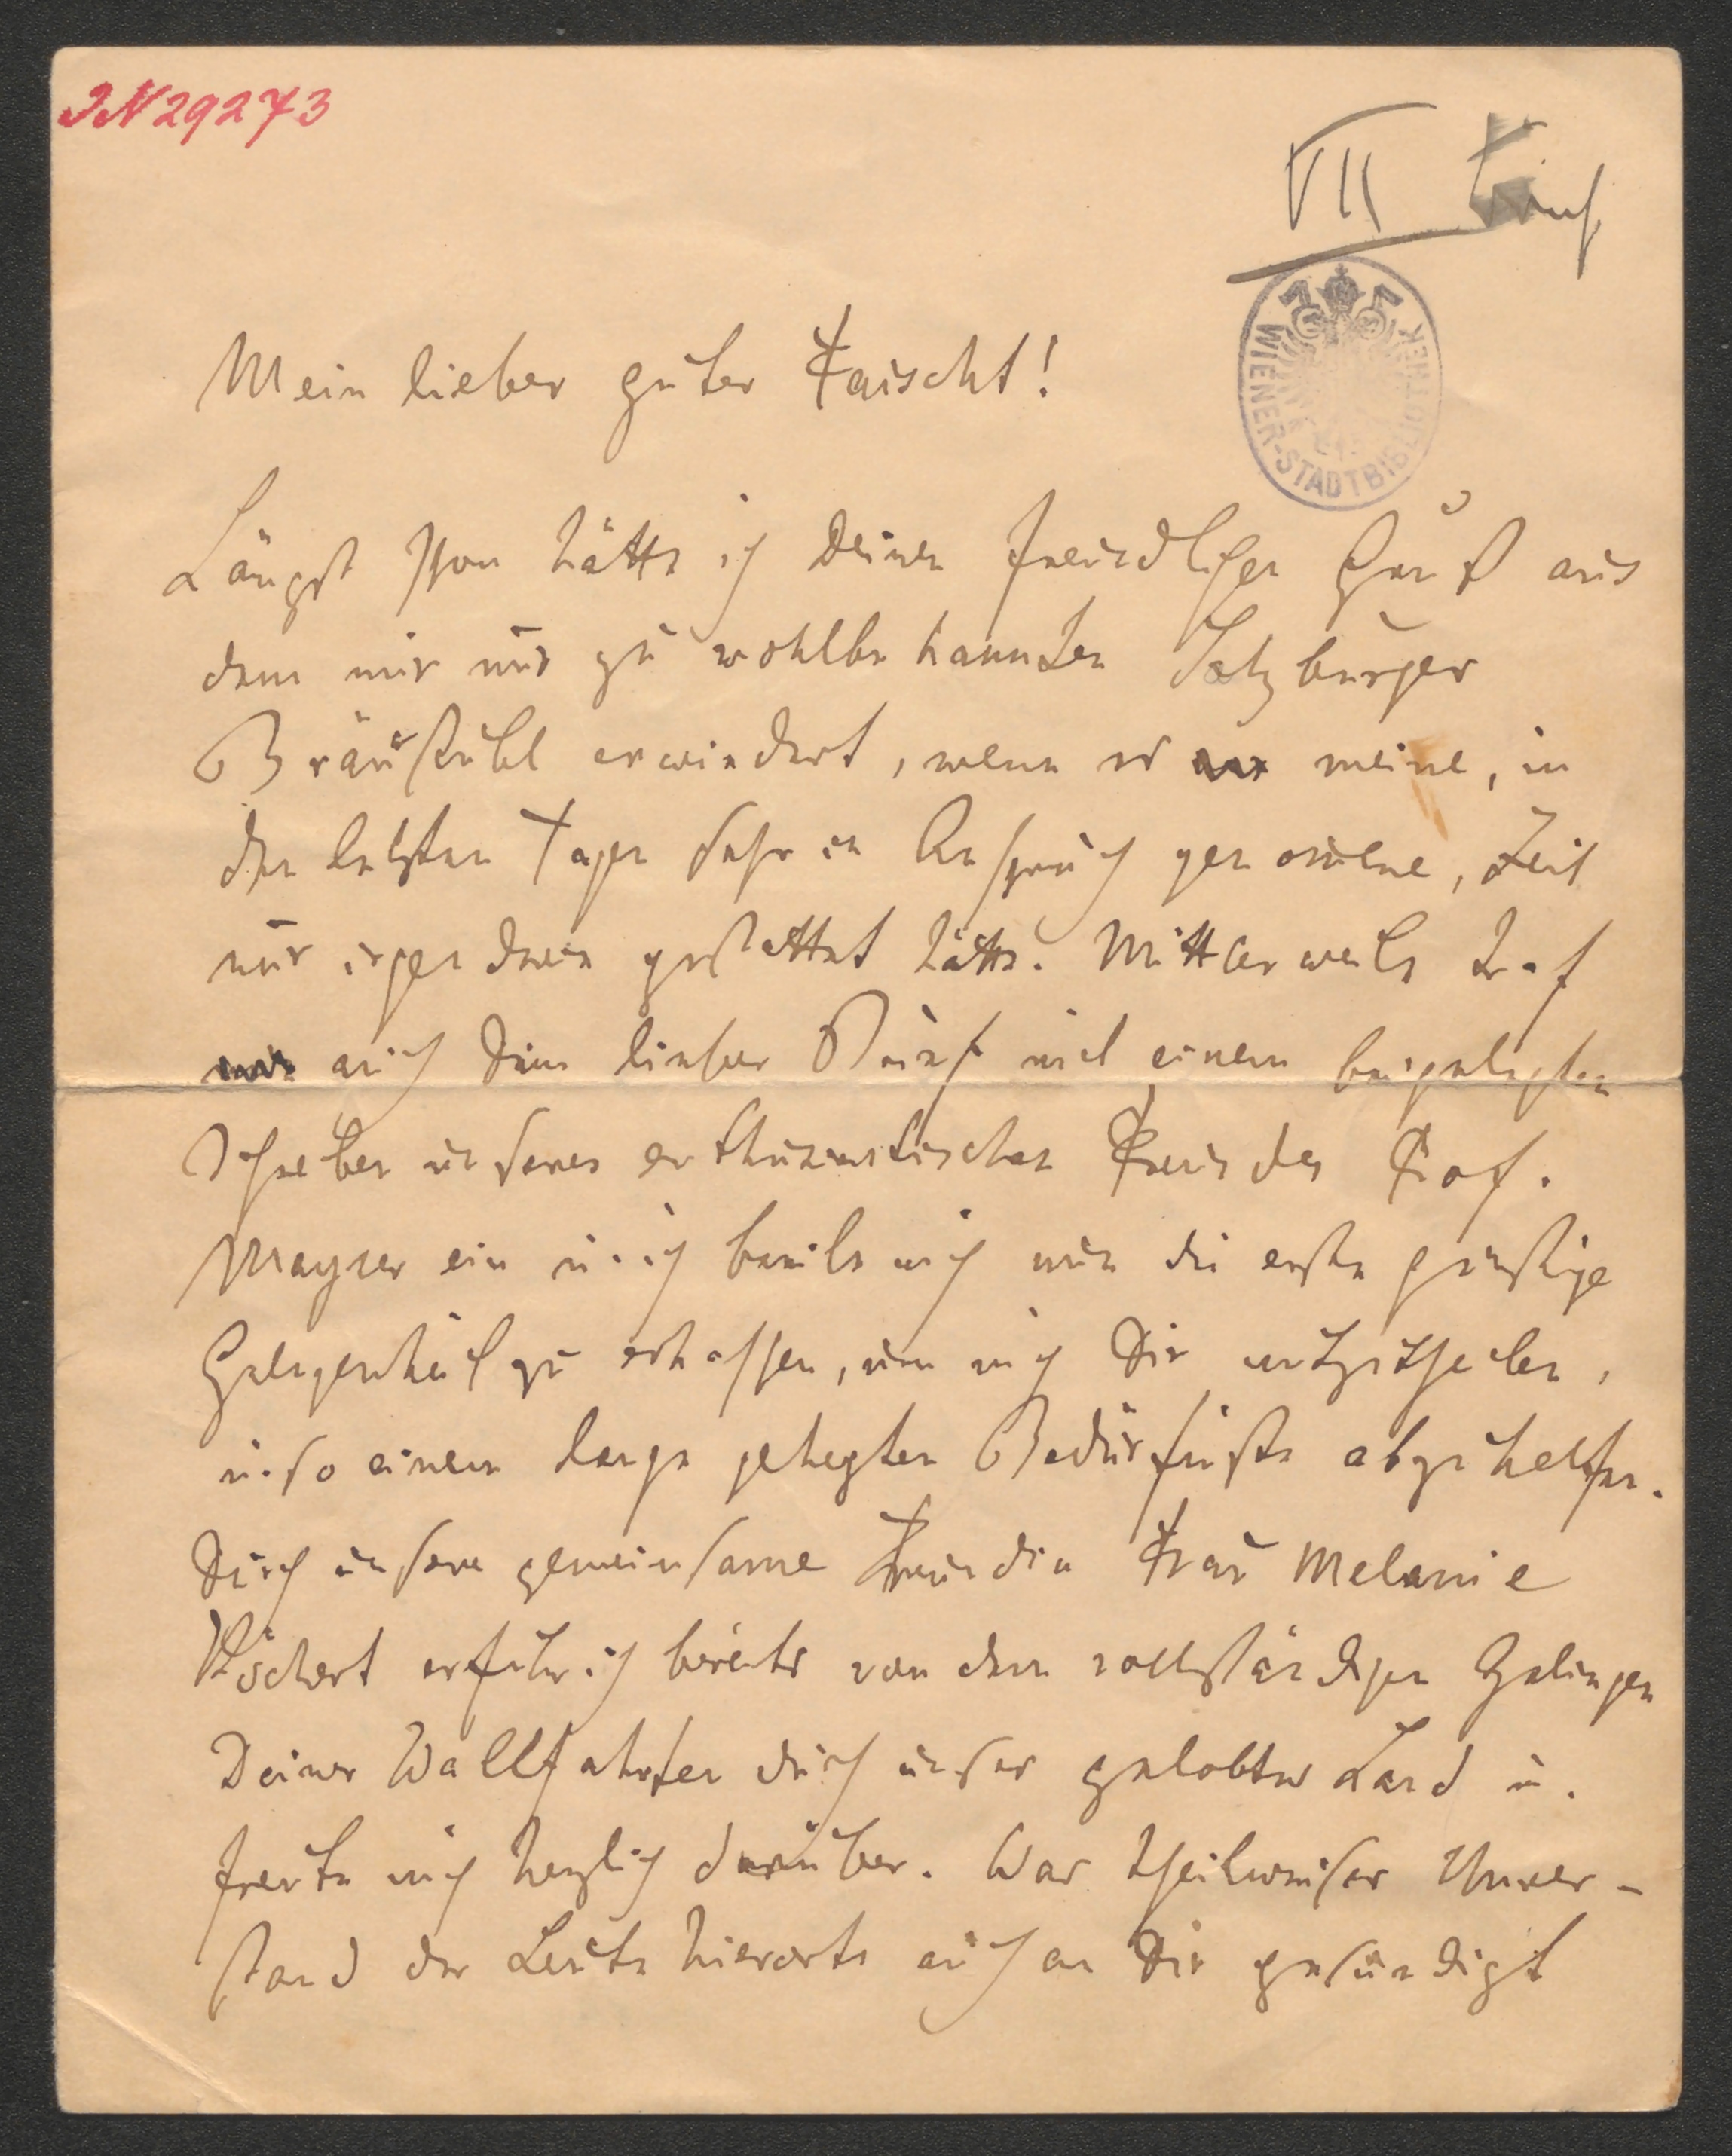 IN 29273
VII
WIENER-STADTBIBLIOTHEK
Mein lieber guter Faischt!
Längst schon hätte ich Deinen freundlichen Gruß aus
dem mir nur zu wohlbekannten Salzburger
Bräustübl erwiedert, wenn es meine, in
den letzten Tagen sehr in Anspruch genommene, Zeit
nur irgendwie gestattet hätte. Mittlerweile traf
auch Dein lieber Brief mit einem beigelegten
Schreiben unseres enthusiastischen Freundes Prof.
Mayser ein u. ich beeile mich nun die erste günstige
Gelegenheit zu erhaschen, um mich Dir mitzutheilen,
u. so einem lange gehegten Bedürfniße abzuhelfen.
Durch unsere gemeinsame Freundin Frau Melanie
Köchert erfuhr ich bereits von dem vollständigen Gelingen
Deiner Wallfahrten durch unser gelobtes Land u.
freute mich herzlich darüber. Was theilweiser Unver-
stand der Leute hierorts auch an Dir gesündigt